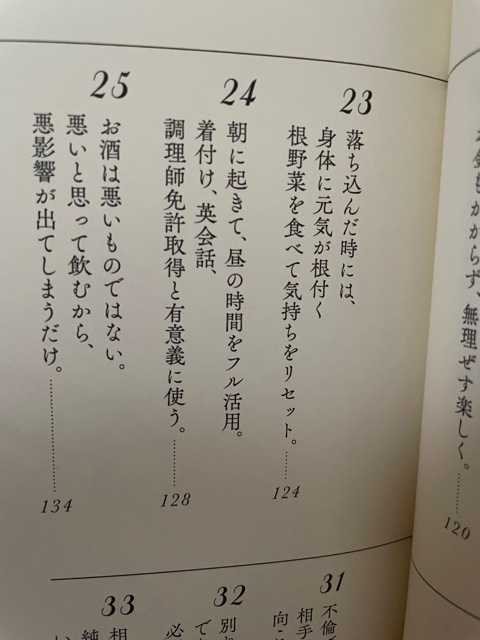 もかからず、無理せず楽しく。
120
23
落ち込んだ時には、
身体に元気が根付く
根野菜を食べて気持ちをリセット。
124
24
朝に起きて、昼の時間をフル活用。
着付け、英会話、
調理師免許取得と有意義に使う。
128
25
お酒は悪いものではない。
悪いと思って飲むから、
悪影響が出てしまうだけ。
134
31
不倫
相手
向こ
32
別れ
でも
必
33
相
純